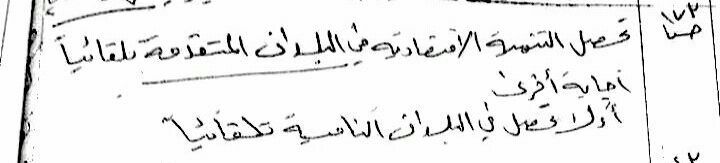 ١٧٢
ص
تحصل التنمية الاقتصادية في البلدان المتقدمة تلقائياً
إجابة أخرى
أو لا تحصل في البلدان النامية تلقائياً